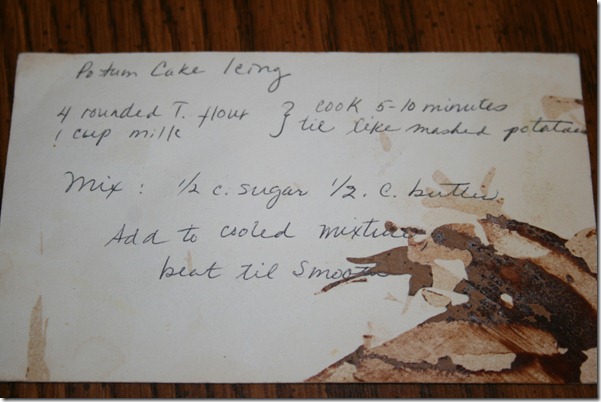 Postum Cake Icing
4 rounded T. flour } cook 5-10 minutes
1 cup milk til like mashed potatoes
Mix: 1/2 c. sugar 1/2 c. butter
Add to cooled mixture,
beat til smooth